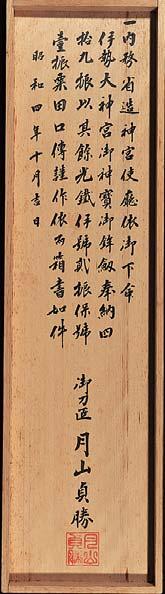 一内務省造神宮使廳依御下命
伊勢大神宮御神寶御鉾劔奉納四
拾九振以其餘光鐵伊號貳振保號
臺振粟田口傳謹作依而箱書如件
昭和四年十月吉日
御刀匠 月山貞勝
月山貞勝